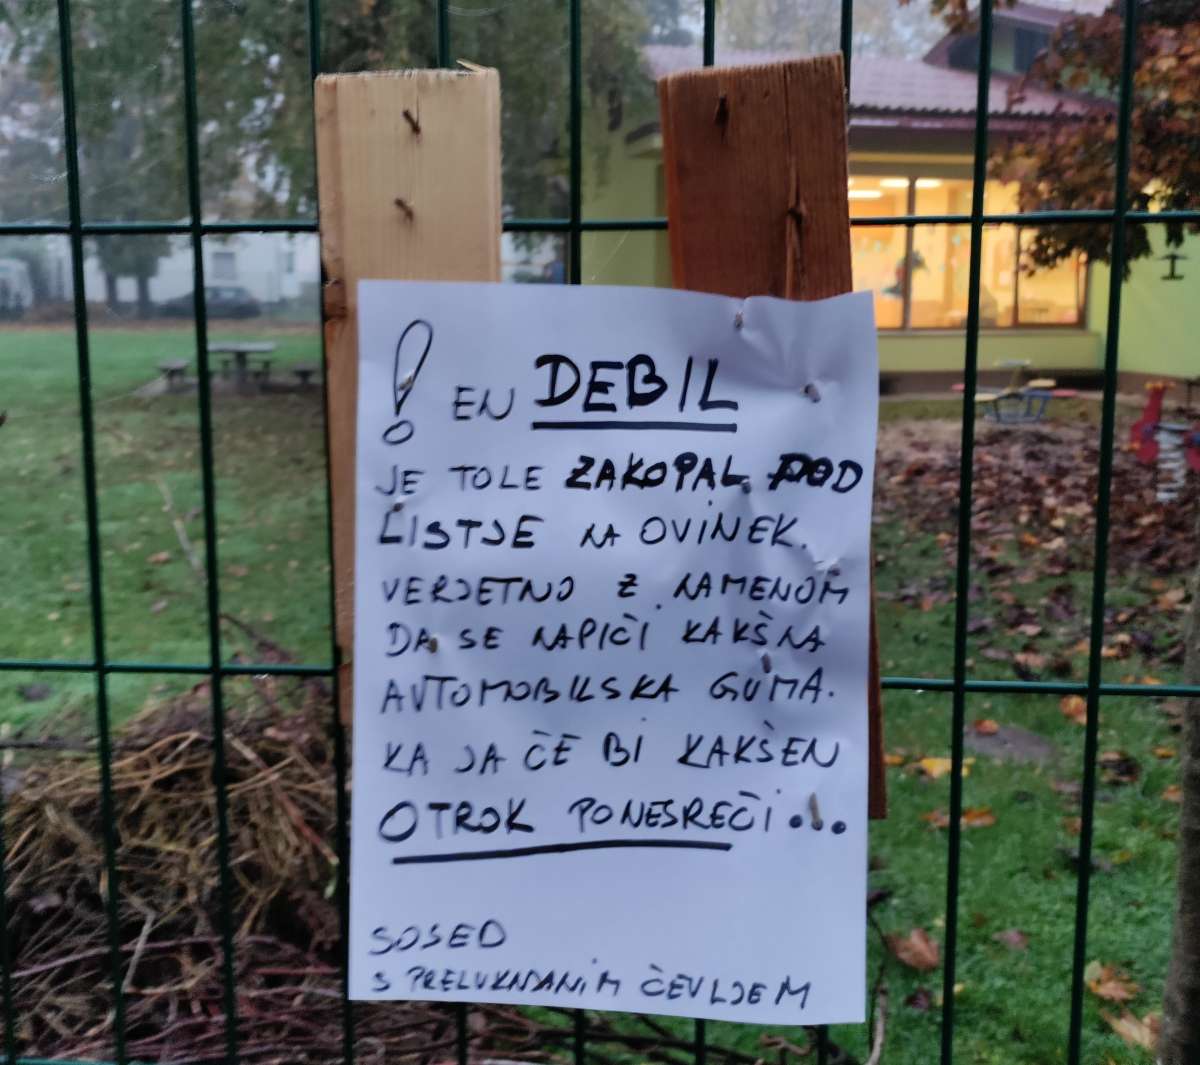 ! EN DEBIL
JE TOLE ZAKOPAL POD
LISTJE NA OVINEK.
VERJETNO Z NAMENOM
DA SE NAPIČI KAKŠNA
AVTOMOBILSKA GUMA.
KA JA ČE BI KAKŠEN
OTROK PONESREČI...
SOSED
S PRELUKNJANIM ČEVLJEM